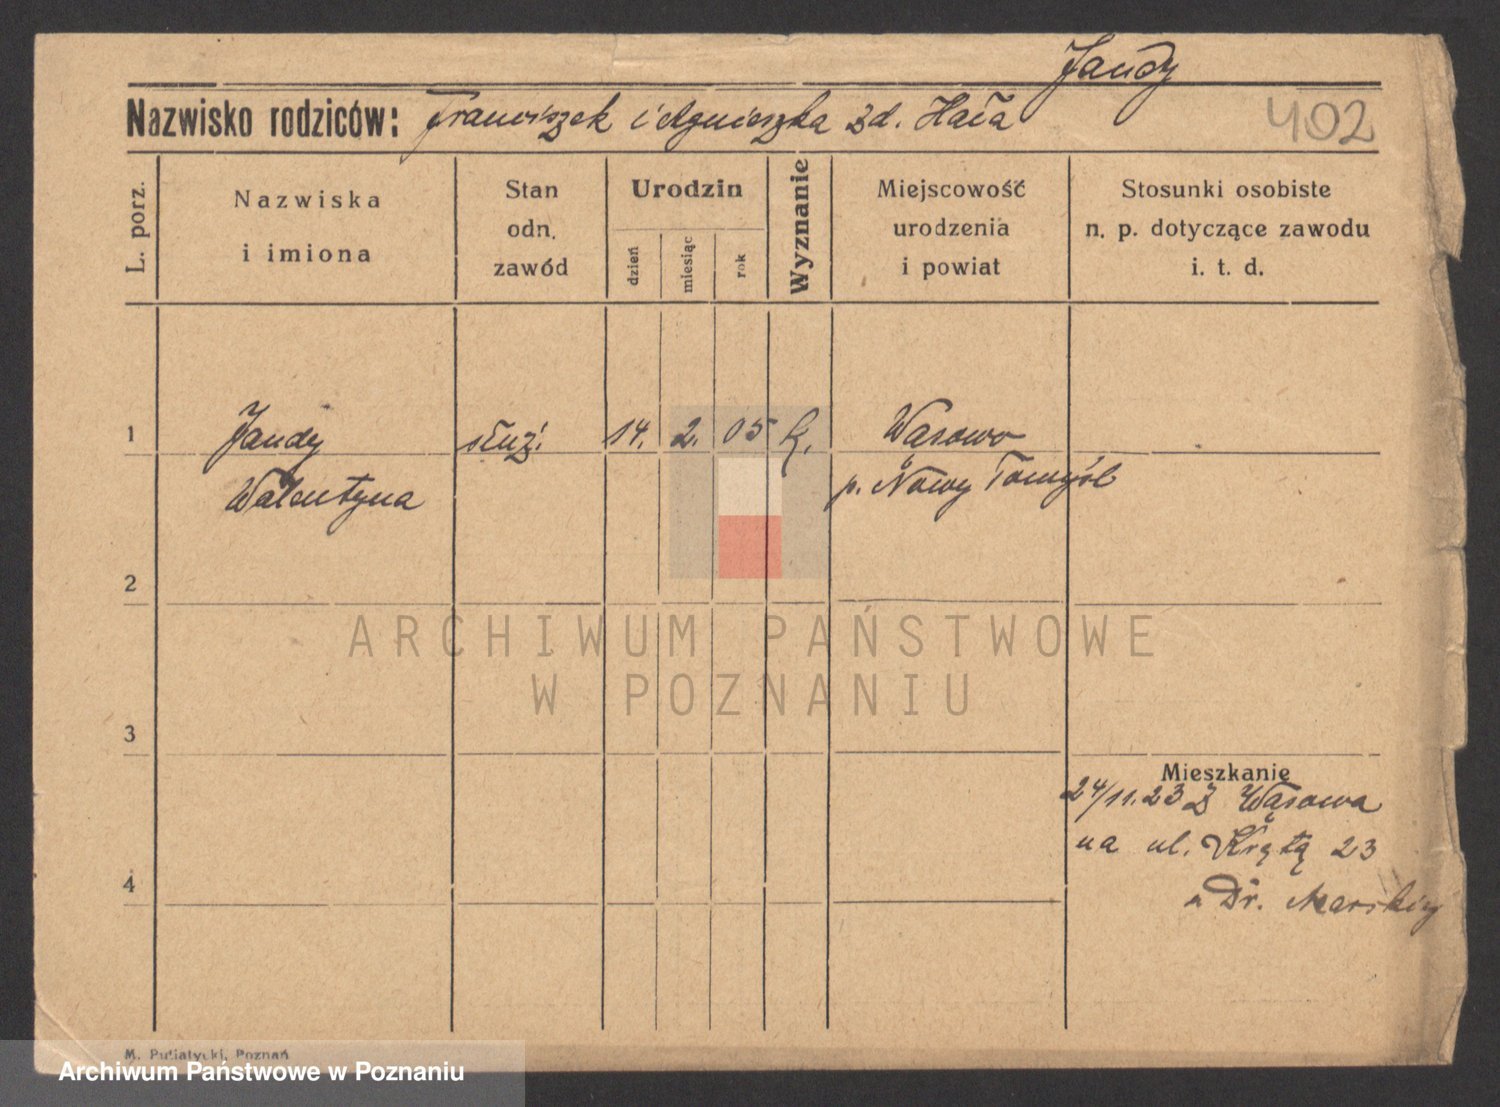 Jandy
Nazwisko rodziców: Franciszek i Agnieszka zd. Hała
402
L. porz.
Nazwiska
i imiona
Stan
odn.
zawód
Urodzin
dzień
miesiąc
rok
Wyznanie
Miejscowość
urodzenia
i powiat
Stosunki osobiste
n. p. dotyczące zawodu
i. t. d.
1 Jandy służ. 14. 2. 05 Wąsowo
Walentyna p. Nowy Tomyśl
2
ARCHIWUM PAŃSTWOWE
W POZNANIU
3
Mieszkanie
24/11.23 z Wąsowa
na ul. Krętą 23
Dr.
4
M. Putiatycki, Poznań
Archiwum Państwowe w Poznaniu